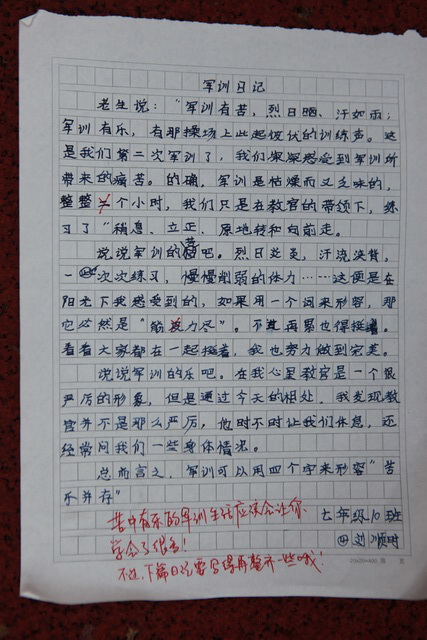 军训日记
老生说："军训有苦，烈日晒、汗如雨；
军训有乐，有那操场上此起彼伏的训练声。这
是我们第二次军训了，我们深深感受到军训所
带来的痛苦。的确，军训是枯燥而又乏味的，
整整三个小时，我们只是在教官的带领下，练
习了"稍息、立正、原地转和向前走。
说说军训的苦吧。烈日炎炎，汗流浃背，
一次次练习，慢慢削弱的体力……这便是在
阳光下我感受到的，如果用一个词来形容，那
它必然是"筋疲力尽"。不过再累也得挺着。
看着大家都在一起挺着，我也努力做到完美。
说说军训的乐吧。在我心里教官是一个很
严厉的形象，但是通过今天的相处，我发现教
官并不是那么严厉，他时不时让我们休息，还
经常问我们一些身体情况。
总而言之，军训可以用四个字来形容"苦
乐并存"
苦中有乐的军训生活应该会让你
七年级10班
学会了很多！
刘顺时
不过下篇日记要写得再整齐一些哦！
20×20=400